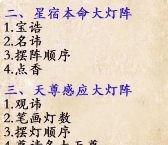 二、星宿本命大灯阵
1.宝诰
2.名讳
3.摆阵顺序
4.点香
三、天尊感应大灯阵
1.观讳
2.笔画灯数
3.摆灯顺序